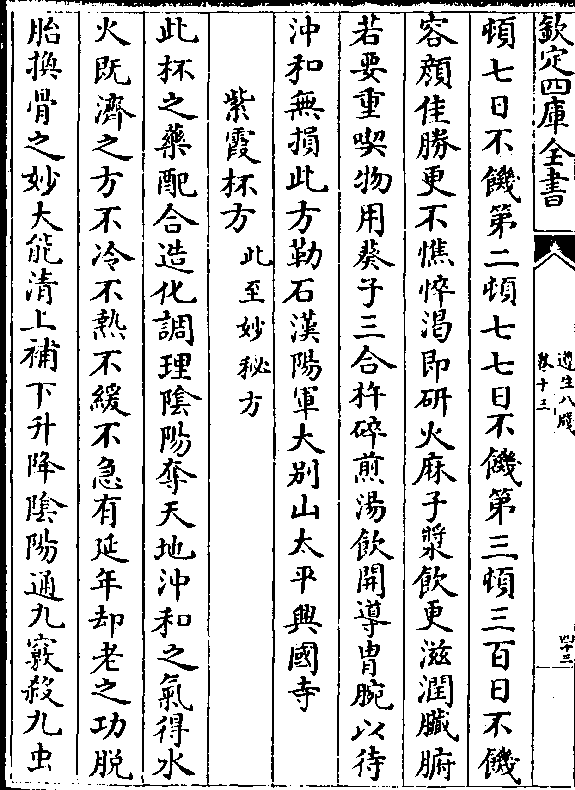 欽定四庫全書
遵生八牋
卷十三
四十三
頓七日不饑第二頓七七日不饑第三頓三百日不饑
容顏佳勝更不憔悴渴即研火麻子漿飲更滋潤臟腑
若要重喫物用葵子三合杵碎煎湯飲開導胃脘以待
沖和無損此方勒石漢陽軍大别山太平興國寺
紫霞杯方此至妙秘方
此杯之藥配合造化調理陰陽奪天地沖和之氣得水
火既濟之方不冷不熱不緩不急有延年却老之功脱
胎換骨之妙大能清上補下升降陰陽通九竅殺九虫